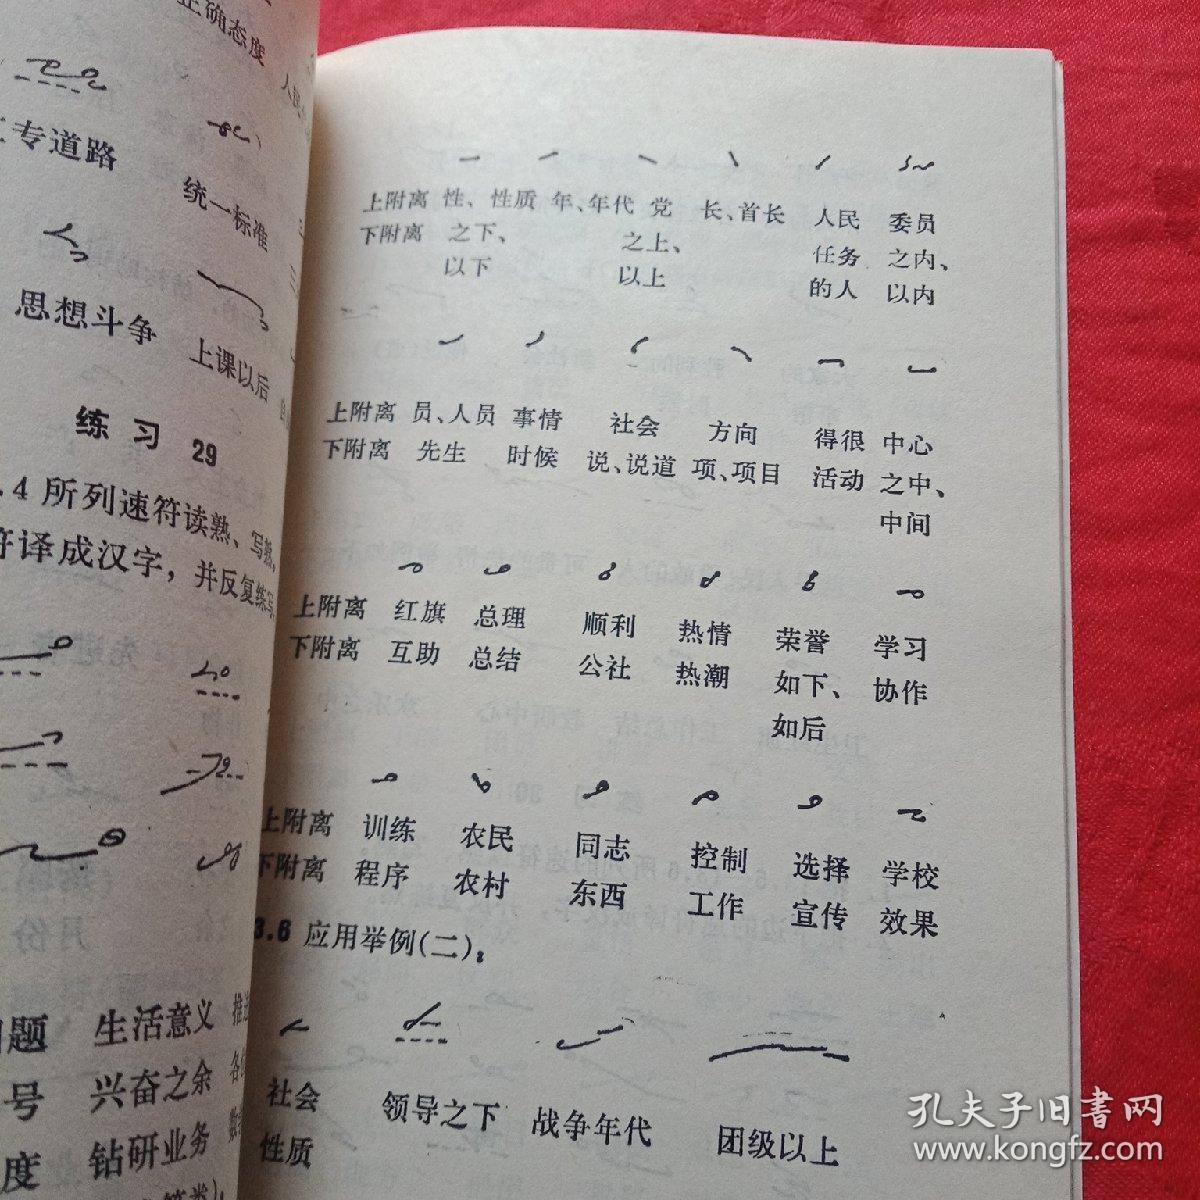 正确态度
专道路
统一标准
思想斗争
上课以后
练 习 29
.4 所列速符读熟、写熟,
符译成汉字，并反复练写
问题 生活意义
号 兴奋之余
度 钻研业务
上附离 性、性质 年、年代 党 长、首长 人民 委员
下附离 之下、 之上、 任务 之内、
以下 以上 的人 以内
上附离 员、人员 事情 社会 方向 得很 中心
下附离 先生 时候 说、说道 项、项目 活动 之中、
中间
上附离 红旗 总理 顺利 热情 荣誉 学习
下附离 互助 总结 公社 热潮 如下、 协作
如后
上附离 训练 农民 同志 控制 选择 学校
下附离 程序 农村 东西 工作 宣传 效果
3.6 应用举例(二)：
社会 领导之下 战争年代 团级以上
性质
孔夫子旧书网
www.kongfz.com